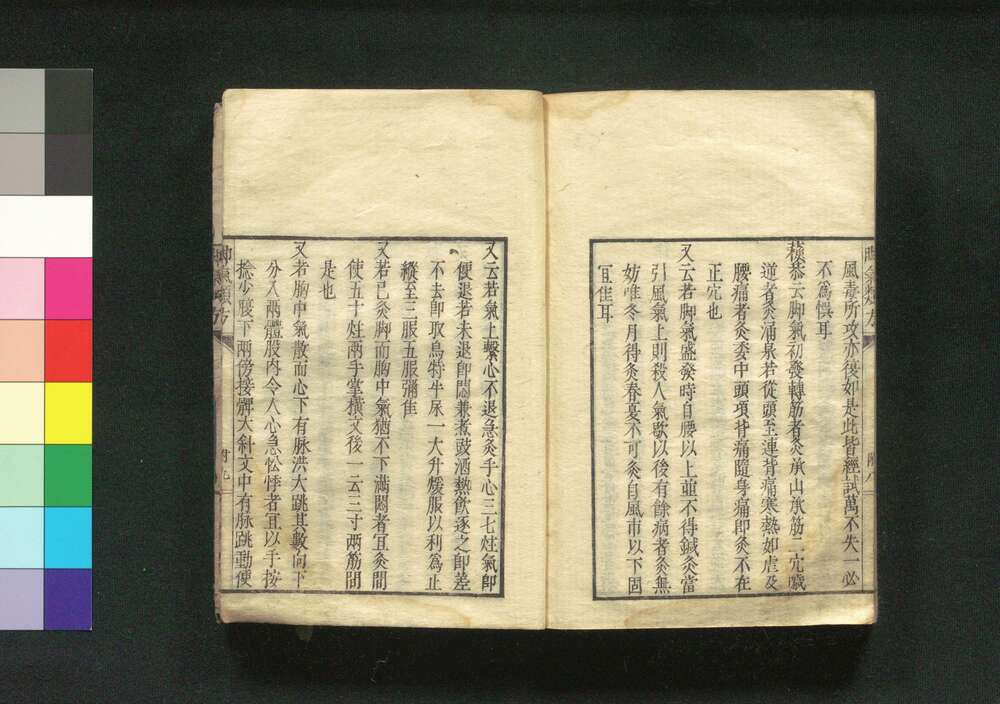 風毒所攻亦復如是此皆經試萬不失一必
不爲悞耳
蘇恭云脚氣初發轉筋者灸承山承筋二穴嘔
逆者灸涌泉若從頭至連背痛寒熱如虐及
腰痛者灸委中頭項背痛隨身痛即灸不在
正穴也
又云若脚氣盛發時自腰以上並不得鍼灸當
引風氣上則殺人氣歇以後有餘病者灸無
妨唯冬月得灸春夏不可灸自風市以下固
宜佳耳
又云若氣上擊心不退急灸手心三七炷氣即
便退若未退即悶兼煮豉酒熱飲逐之即差
不去即取烏特牛尿一大升煖服以利爲止
縱至三服五服彌佳
又若已灸脚而胸中氣猶不下滿悶者宜灸間
使五十炷兩手掌橫文後一云三寸兩筋間
是也
又若胸中氣散而心下有脉洪大跳其數向下
分入兩髀股內令人心急忪悸者宜以手按
捻少腹下兩傍接髀大斜文中有脉跳動便